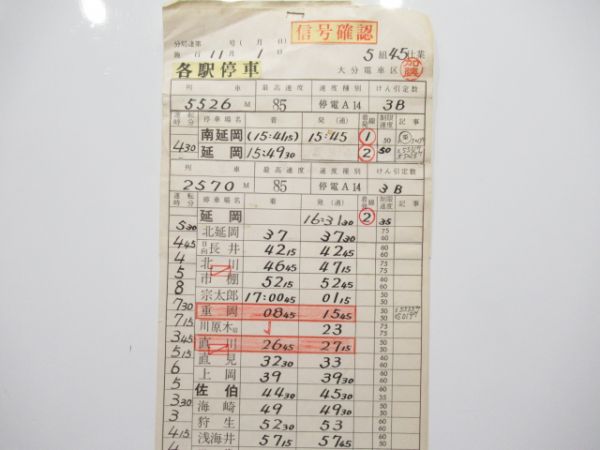 信号確認
分局達第 号( 月 日)
施行 11月 1日
5組 45仕業
各駅停車
大分電車区
列車 最高速度 速度種別 けん引定数
5526M 85 停電A14 3B
運転時分 停車場名 着 発(通) 着発線 制限速度 記事
南延岡 (15:41 15) 15:45 ① 50
4 30 延岡 15:49 30 ② 50
列車 最高速度 速度種別 けん引定数
2570M 85 停電A14 3B
運転時分 停車場名 着 発(通) 着発線 制限速度 記事
延岡 16:31 30 ② 35
5 30 北延岡 37 37 30
4 45 日向長井 42 15 42 45
4 45 北川 46 45 47 15
5 市棚 52 15 52 45
8 宗太郎 17:00 45 01 15
7 30 重岡 08 45 15 45
7 15 川原木信 ↓ 23
3 45 直川 26 45 27 15
5 15 直見 32 30 33
6 上岡 39 39 30
5 佐伯 44 30 45 30
3 30 海崎 49 49 30
3 狩生 52 30 53
4 15 浅海井 57 15 57 45